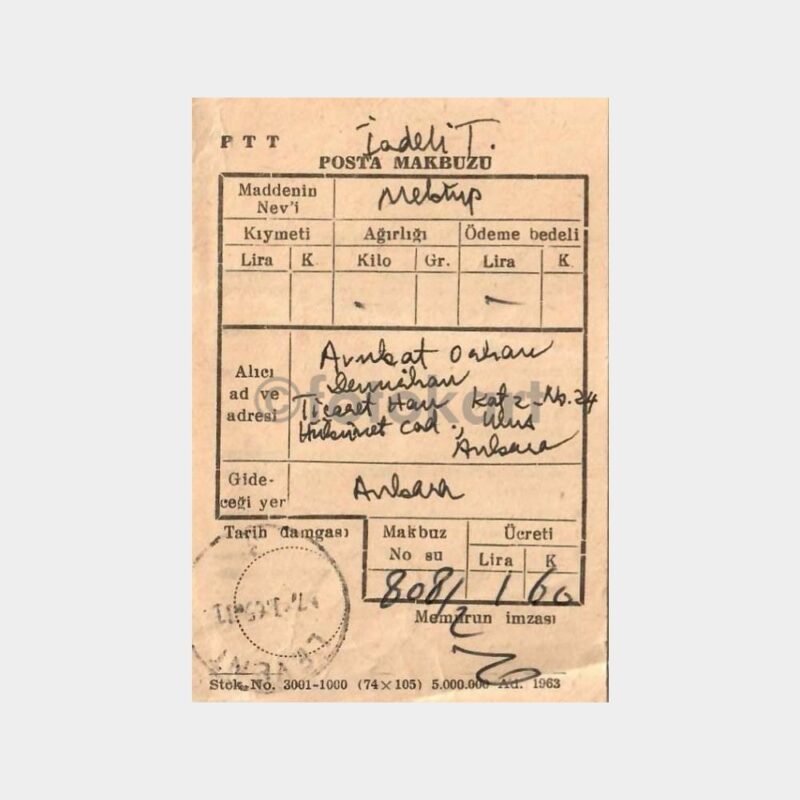 PTT
İadeli T.
POSTA MAKBUZU
Maddenin Nev'i
Mektup
Kıymeti
Ağırlığı
Ödeme bedeli
Lira K
Kilo Gr.
Lira K
Alıcı ad ve adresi
Avukat Orhan
Demirhan
Ticaret Han Kat 2 No. 24
Hükümet Cad., Ulus
Ankara
Gideceği yer
Ankara
Tarih damgası
Makbuz No su
Ücreti
Lira K
808/2
1 60
Memurun imzası
Stok. No. 3001-1000 (74×105) 5.000.000 Ad. 1963
©fofokart